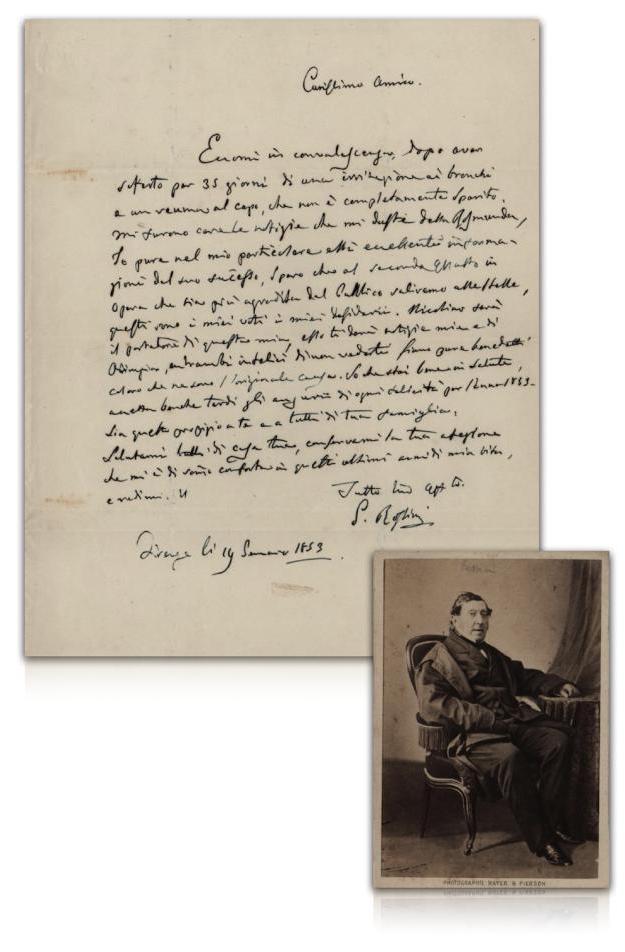 Carissimo Amico.
Eccomi in convalescenza, dopo aver
sofferto per 35 giorni di una irritazione ai bronchi
e un reuma al capo, che non è completamente sparito.
mi furono care le notizie che mi daste della Rosmunda,
Io pure nel mio particolare ebbi eccellenti informa-
zioni del suo successo, spero che al secondo
Opera che sia più agradita dal Pubblico saliremo alle stelle,
questi sono i miei voti i miei desideri. Nicolino sarà
il portatore di questa mia, esso ti darà notizie mie e di
Olimpia, entrambi infelici di non vederti
coloro che ne sono l'originale causa. So che stai bene in salute,
accetta benche tardi gli augurii di ogni felicità per l'Anno 1853-
sia questo propizio a te e a tutti di tua famiglia.
Salutami tutti di casa tua, conservami la tua affezione
che mi è di sommo conforto in questi ultimi anni di mia vita,
e credimi. Il
Tutto tuo aff to.
G. Rossini
Firenze li 19 Gennaio 1853.
PHOTOGRAPHIE MAYER & PIERSON